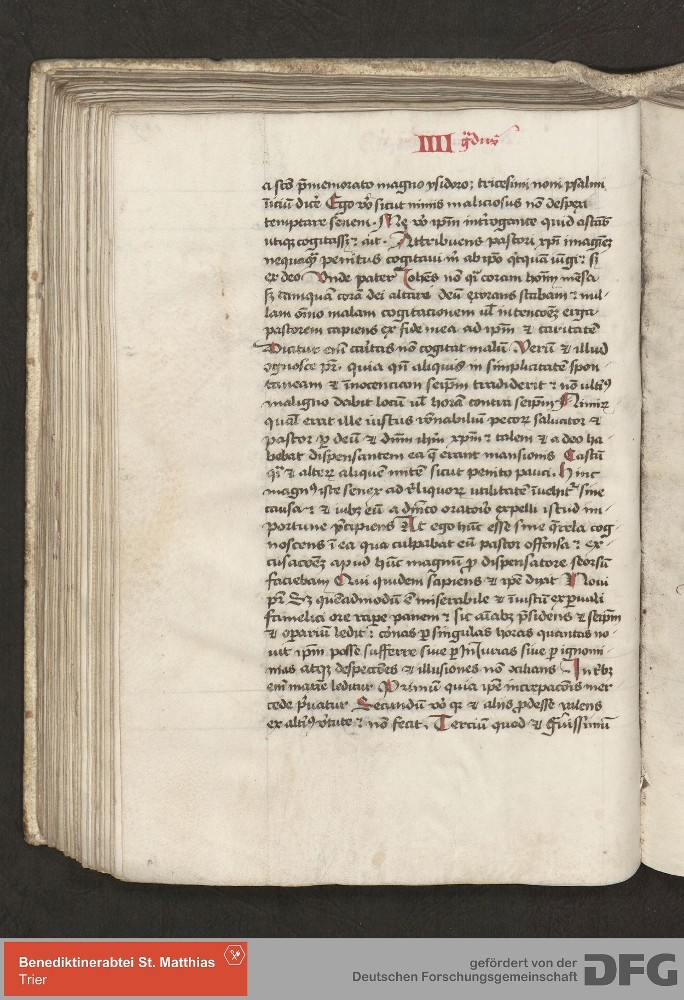 IIII gͣdus
a scō p̄memorato magno ysidoro; tricesimi noni psalmi
iiciū dicē Ego v̊o sicut nimis maliciosus nō desperi
temptare senem. Me v̊o ip̄m int̄rogante quid astās
utiqꝫ cogitassꝫ: ait. Attribuens pastori xp̄i imaginē
nequaqͣꝫ penitus cogitavi m̄ ab ip̄o iungi: sꝫ
ex deo Vnde pater Ioh̄es nō qͣi coram hoīm mēsa
sꝫ tamquā corā dei altare deū exorans stabam: nul-
lam oīno malam cogitationem ul̄ intencōeꝫ erga
pastorem capiens ex fide mea ad ip̄m & caritatē
Dicitur em̄ caritas nō cogitat malū Verū & illud
ognosce pr̄. quia qn̄ aliquis in simplicitatē spon-
taneam & īnocenciam seip̄m tradiderit: nō ultiꝰ
maligno dabit locū ul̄ horam contra seip̄m Nimirꝫ
qual̄ erat ille iustus rōnabiliū pecorꝫ saluator &
pastor ꝑ deū & dn̄m ih̄m xp̄m: talem & a deo ha-
bebat dispensantem ea q̄ erant mansionis Castū
qͥ & alterꝫ aliquē mitē sicut penito pauci. Hinc
magnꝰ iste senex ad r̄liquorꝫ utilitatē īuehitͬ sine
causa: & iubꝫ eū a dn̄ico oratorio expelli istud im-
portune p̄cipiens At ego hūc esse sine q̄rela cog-
noscens ī ea qua culpabat eū pastor offensa: ex-
cusacōeꝫ apud hūc magnū ꝑ dispensatore seorsū
faciebam Qui quidem sapiens & ip̄e dixit Noui
pr̄ Sꝫ quēadmodū ē miserabile & iniustū ex puuli
famelici ore rape panem: sic aīabꝫ p̄sidens & seip̄m
& oꝑariū ledit: conas ꝑ singulas horas quantas no-
uit ip̄m posse sufferre siue ꝑ iniurias siue ꝑ ignomi-
nias atqꝫ despectōes & illusiones nō ocilians In trībꝫ
em̄ maxīe leditur Primū quia ip̄e increpacōnis mer
cede p̄uatur Secundū v̊o qꝫ & alijs ꝓdesse valens
ex altiꝰ v̄tute: nō fecit. Terciū quod & gͣuissimū
Benediktinerabtei St. Matthias
Trier
gefördert von der
Deutschen Forschungsgemeinschaft
DFG